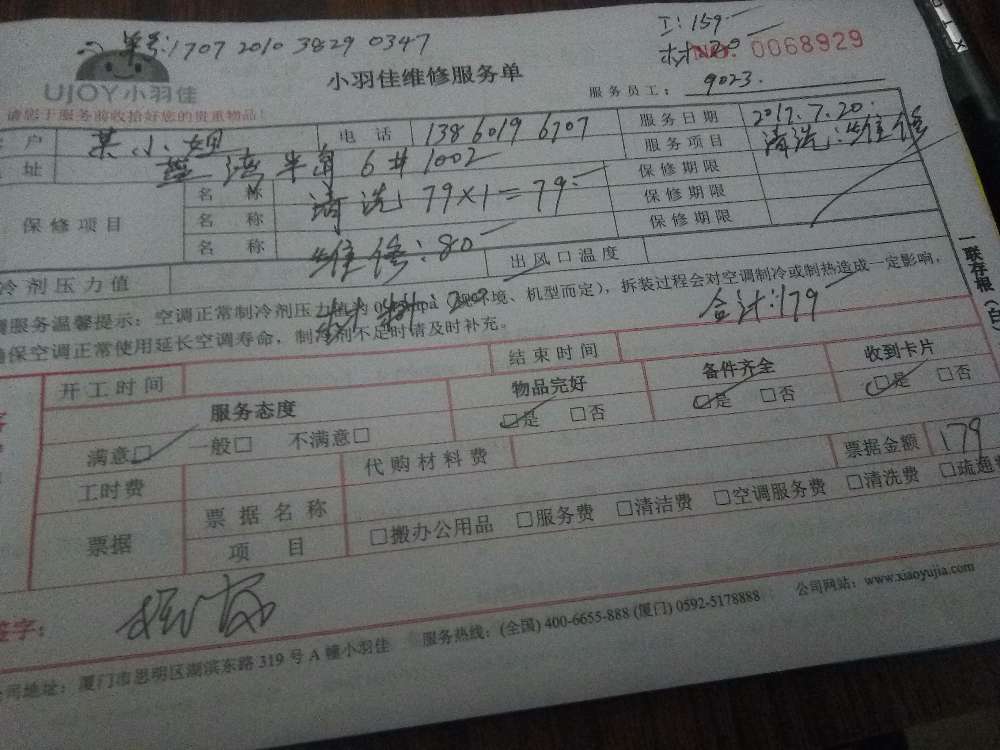 单号:1707 2010 3829 0347
工:159
材:20
№: 0068929
UJOY小羽佳
小羽佳维修服务单
服务员工: 9023.
请您于服务前收拾好您的贵重物品!
户 某小姐 电话 13860196707 服务日期 2017.7.20.
址 湾半岛6#1002 服务项目 清洗:维修
保修项目 名称 清洗 79×1=79 保修期限
名称 保修期限
名称 维修:80 保修期限
冷剂压力值 出风口温度
服务温馨提示:空调正常制冷剂压力值为 环境、机型而定),拆装过程会对空调制冷或制热造成一定影响,
确保空调正常使用延长空调寿命,制冷剂不足时请及时补充。
材料 20
合计:179
一联存根(白
开工时间 结束时间
服务态度 物品完好 备件齐全 收到卡片
满意□ 一般□ 不满意□ □是 □否 □是 □否 □是 □否
工时费 代购材料费 票据金额 179
票据 票据名称
项目 □搬办公用品 □服务费 □清洁费 □空调服务费 □清洗费 □疏通
签字:
公司地址:厦门市思明区湖滨东路319号A幢小羽佳 服务热线:(全国) 400-6655-888 (厦门) 0592-5178888 公司网站:www.xiaoyujia.com